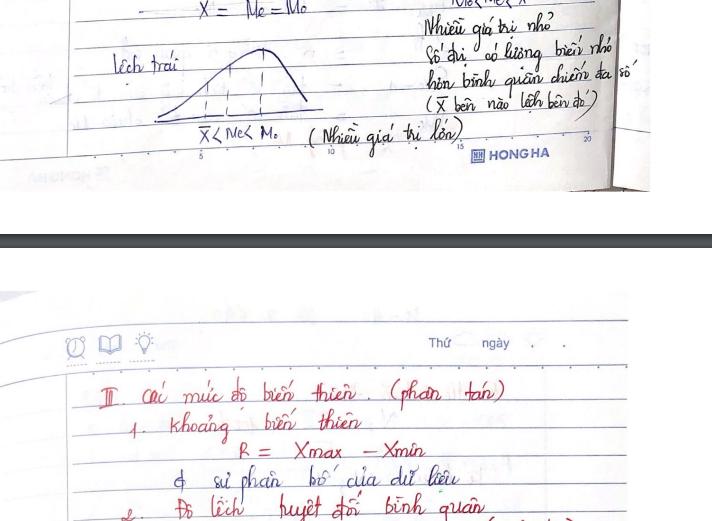 X̄ = Me = Mo
Nhiều giá trị nhỏ
Số đvị có lượng biến nhỏ
hơn bình quân chiếm đa số
(X̄ bên nào lệch bên đó)
lệch trái
X̄ < Me < Mo
(Nhiều giá trị lớn)
5 10 15 20
HH HONG HA
Thứ ngày . .
III. Các mức độ biến thiên. (phân tán)
1. Khoảng biến thiên
R = Xmax - Xmin
sự phân bố của dữ liệu
2. Độ lệch tuyệt đối bình quân